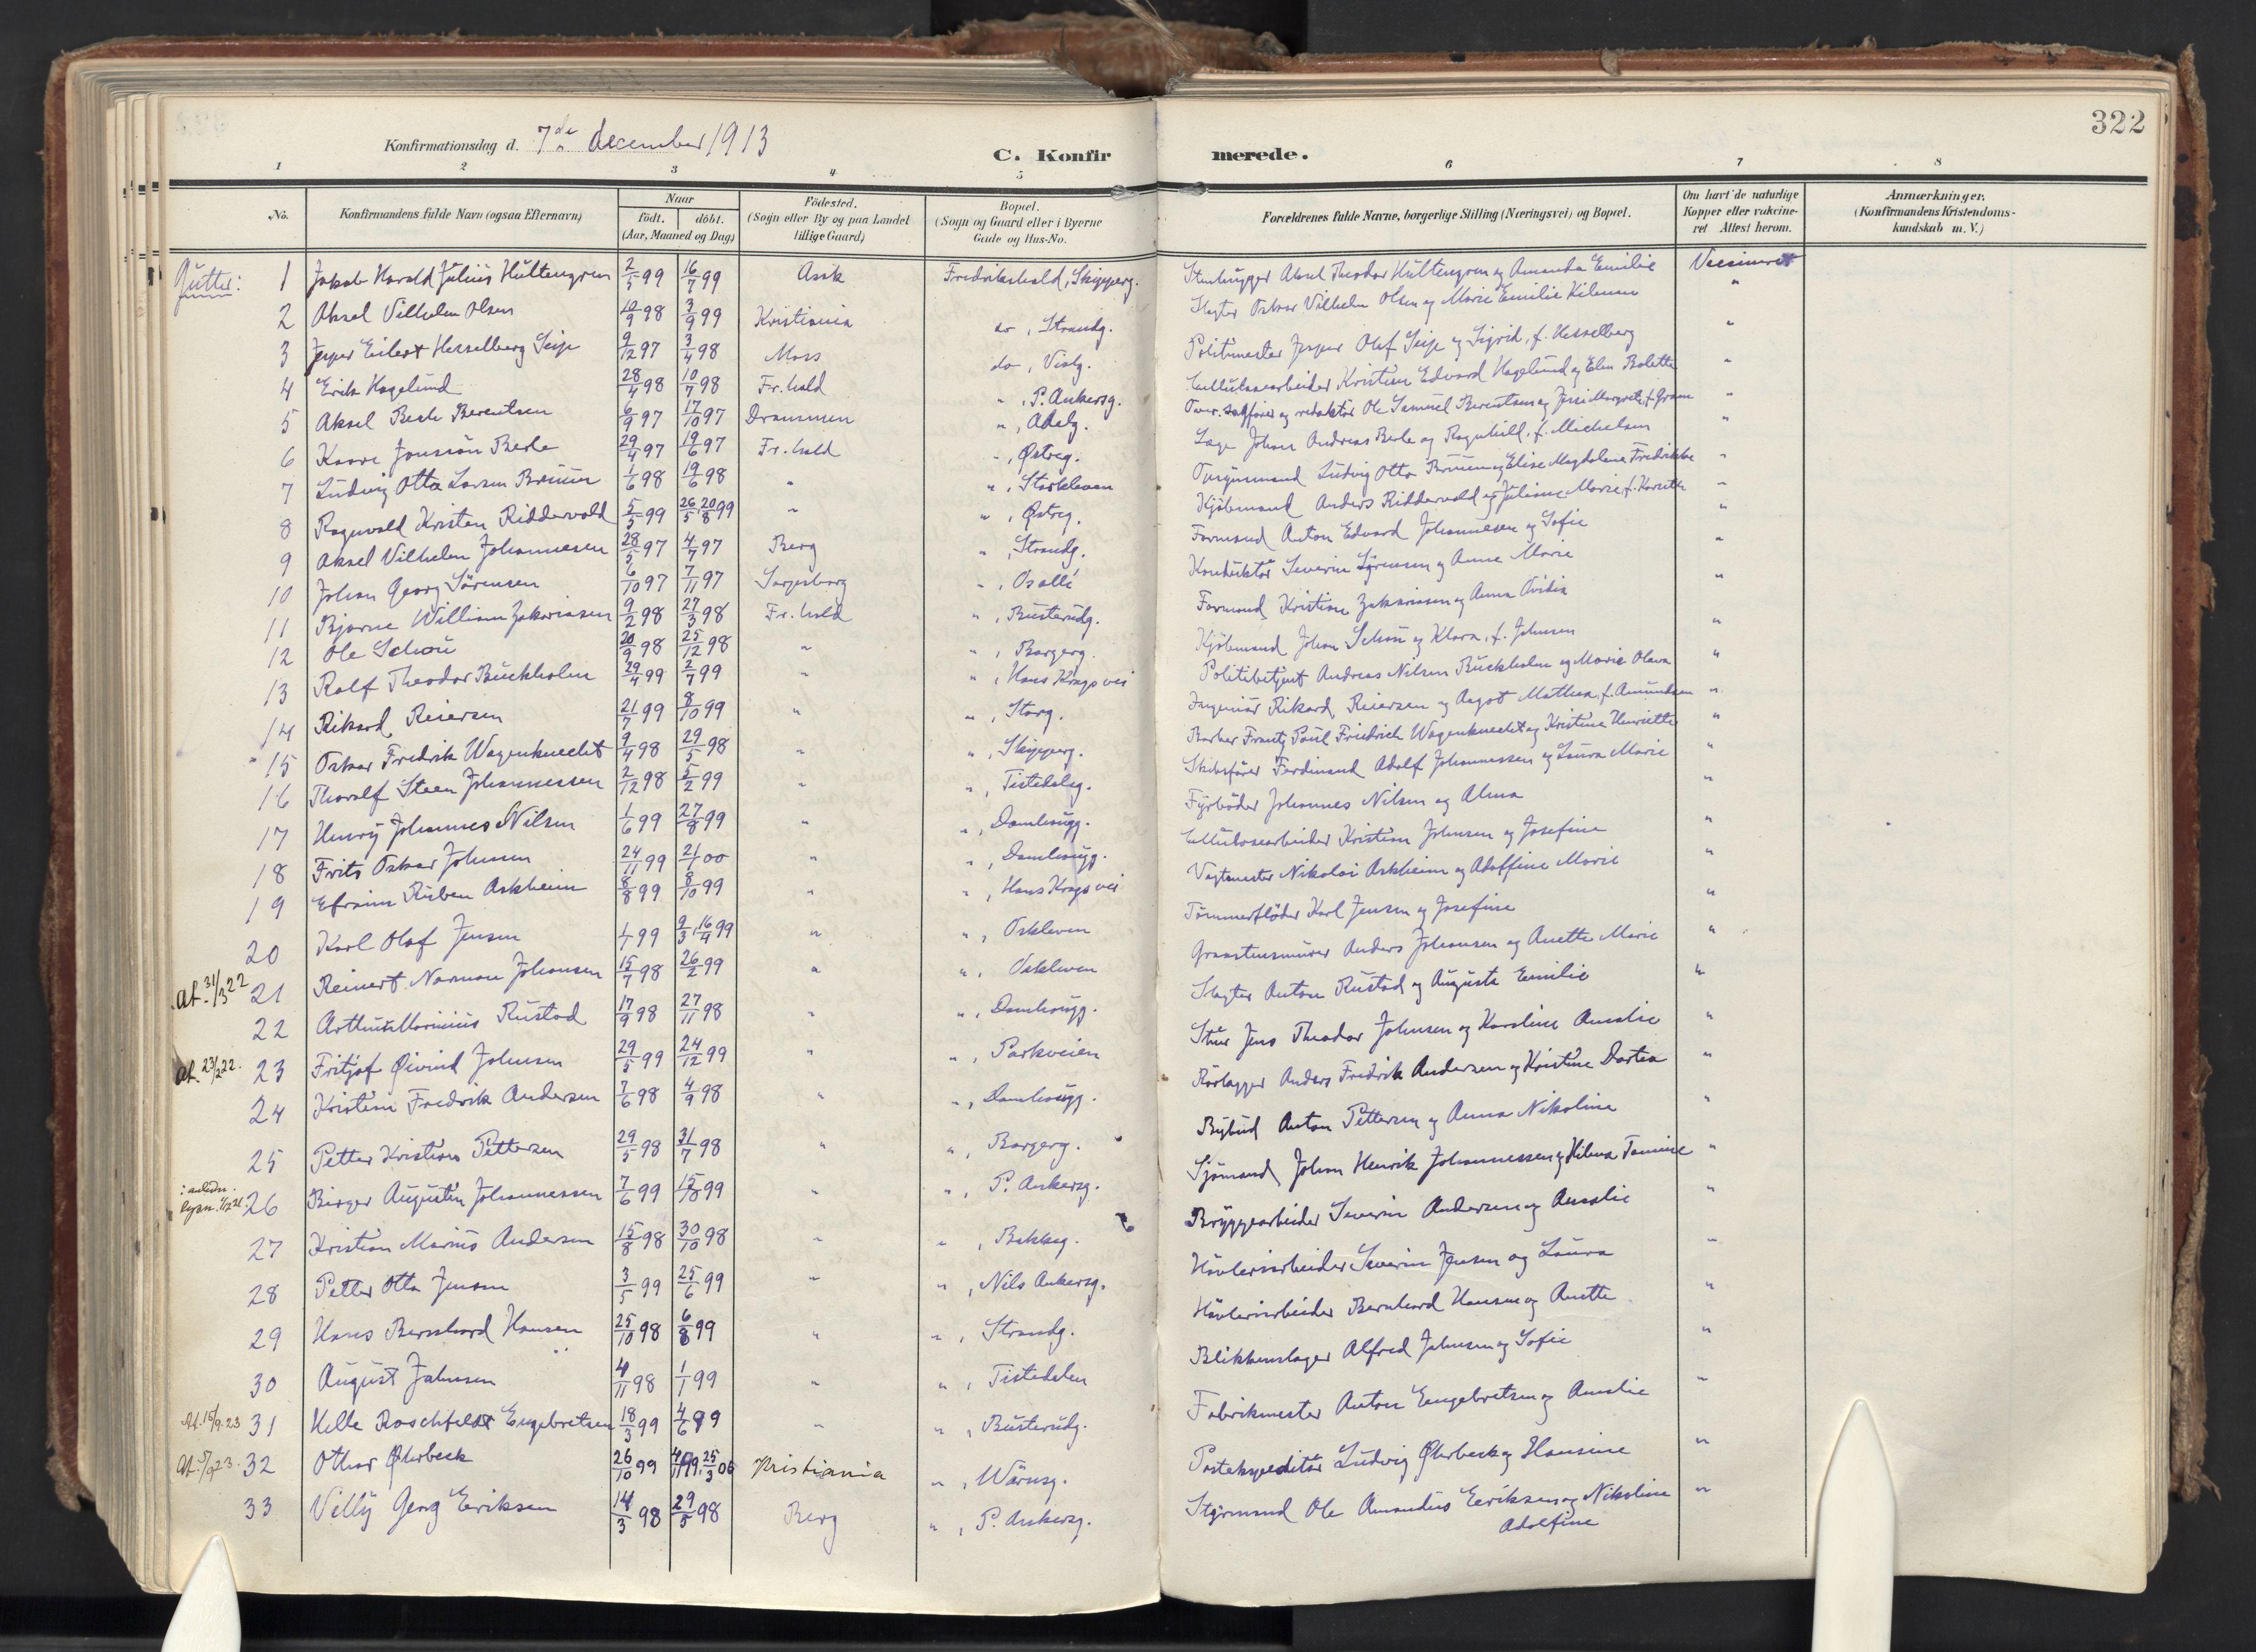 322
Konfirmationsdag d. 7de december 1913
C. Konfirmerede.
1 2 3 4 5 6 7 8
No. Konfirmandens fulde Navn (ogsaa Efternavn) Naar født. døbt. (Aar, Maaned og Dag) Fødested. (Sogn eller By og paa Landet tillige Gaard) Bopæl. (Sogn og Gaard eller i Byerne Gade og Hus-No. Forældrenes fulde Navne, borgerlige Stilling (Næringsvei) og Bopæl. Om havt de naturlige Kopper eller vakcineret Attest herom. Anmærkninger. (Konfirmandens Kristendomskundskab m. V.)
Gutter: 1 Jakob Harald Julius Hultengren 2/5 99 16/7 99 Fredrikshald, Skipperg. Stenhugger Aksel Theodor Hultengren og Amanda Emilie
2 Aksel Vilhelm Olsen 10/9 98 3/9 99 Kristiania do, Strandg. Slagter Oskar Vilhelm Olsen og Marie Emilie "
3 Jesper Eilert Hesselberg Seip 9/12 97 3/4 98 Moss do, Politimester Jesper Olaf Seip og Sigrid, f. Hesselberg "
4 Erik Hagelund 28/4 98 10/7 98 Fr.hald ", P. Ankersg. Cellulosearbeider Kristian Edvard Hagelund og Elen Bolette "
5 Aksel Berle Berentsen 6/9 97 17/10 97 Drammen ", Adelg. Over. sagfører og redaktør Ole Samuel Berentsen og "
6 Kaare Jonssøn Berle 29/4 97 19/6 97 Fr.hald ", Østreg. Læge Johan Andreas Berle og Ragnhild, f. Michelsen "
7 Ludvig Otto Larsen Bruun 1/6 98 19/6 98 " ", Ludvig Otto Bruun og Elise Magdalene Fredrikke "
8 Ragnvald Kristen Riddervold 5/5 99 26/5 20/8 99 " ", Østreg. Kjøbmand Anders Riddervold og Juliane Marie, f. "
9 Aksel Vilhelm Johannesen 28/5 97 4/7 97 Berg ", Strandg. Formand Anton Edvard Johannesen og Sofie "
10 Johan Georg Sørensen 6/10 97 7/11 97 Sarpsborg ", Os allé Konduktør Severin Sørensen og Anne Marie "
11 Bjarne William Zakariasen 9/2 98 27/3 98 Fr.hald ", Busterudg. Formand Kristian Zakariasen og Anna "
12 Ole Schou 20/9 98 25/12 98 " ", Borgerg. Kjøbmand Johan Schou og Klara, f. Johnsen "
13 Rolf Theodor Buckholm 29/4 99 2/7 99 " ", Hans Krags vei Politibetjent Andreas Nilsen Buckholm og Marie Olava "
14 Rikard Reiersen 21/7 99 8/10 99 " ", Storg. Ingeniør Rikard Reiersen og Aagot Mathea, f. Amundsen "
15 Oskar Fredrik Wagenknecht 9/4 98 29/5 98 " ", Skipperg. Barber Frantz Paul Friedrich Wagenknecht og Kristine Henriette "
16 Thoralf Steen Johannessen 2/12 98 5/2 99 " ", Tistedalsg. Skibsfører Ferdinand Adolf Johannessen og Laura Marie "
17 Henry Johannes Nilsen 1/6 99 27/8 99 " ", Damhaugg. Fyrbøder Johannes Nilsen og Alma "
18 Frits Oskar Johnsen 24/11 99 21/1 00 " ", Damhaugg. Cellulosearbeider Kristian Johnsen og Josefine "
19 Efraim Ruben Askheim 8/8 99 8/10 99 " ", Hans Krags vei Vagtmester Nikolai Askheim og Adolfine Marie "
20 Karl Olaf Jensen 1/1 99 9/3, 16/4 99 " ", Oskleven Tømmerfløder Karl Jensen og Josefine "
At. 31/3 22 21 Reinert Norman Johansen 15/7 98 26/2 99 " ", Oskleven Graastensmurer Anders Johansen og Anette Marie "
22 Arthur Marinius Rustad 17/9 98 27/11 98 " ", Damhaugg. Slagter Anton Rustad og Augusta Emilie "
At. 23/2 22. 23 Fritjof Øivind Johnsen 29/5 99 24/12 99 " ", Parkveien Jens Theodor Johnsen og Karoline Amalie "
24 Kristian Fredrik Andersen 7/6 98 4/9 98 " ", Damhaugg. Rørlægger Anders Fredrik Andersen og Kristine Dortea "
25 Petter Kristian Pettersen 29/5 98 31/7 98 " ", Borgerg. Bybud Anton Pettersen og Anna Nikoline "
26 Birger Augustin Johannessen 7/6 99 15/10 99 " ", P. Ankersg. Sjømand Johan Henrik Johannessen og Hilma "
27 Kristian Marius Andersen 15/8 98 30/10 98 " ", Bakkeg. Bryggearbeider Severin Andersen og Amalie "
28 Petter Otto Jensen 3/5 99 25/6 99 " ", Nils Ankersg. Høvleriarbeider Severin Jensen og Laura "
29 Hans Bernhard Hansen 25/10 98 6/8 99 " ", Strandg. Høvleriarbeider Bernhard Hansen og Anette "
30 August Johnsen 4/11 98 1/1 99 " ", Tistedalen Blikkenslager Alfred Johnsen og Sofie "
At. 15/9 23 31 Helle Roschfeldt Engebretsen 18/3 99 4/6 99 " ", Busterudg. Fabrikmester Anton Engebretsen og Amalie "
At. 5/9 23. 32 Othar Øhrbeck 26/10 99 Kristiania ", Wærnsg. Postekspeditør Ludvig Øhrbeck og Hansine "
33 Villy Georg Eriksen 14/3 98 29/5 98 Berg ", P. Ankersg. Styrmand Ole Amandus Eriksen og Nikoline Adolfine "